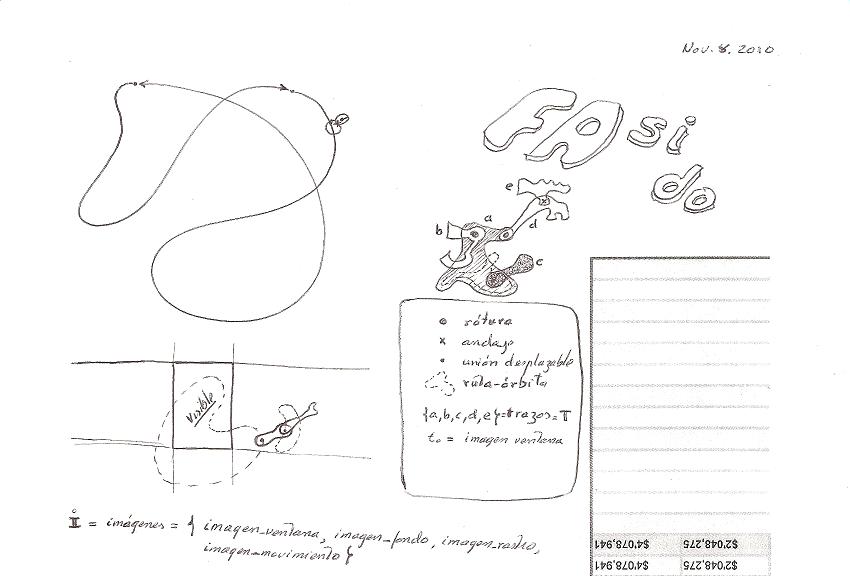 Nov. 8, 2010
FAsi
do
e
a
b
d
c
rótura
anclaje
unión desplazable
ruta-órbita
{a,b,c,d,e}=trazos=T
t₀ = imagen ventana
visible
i = imágenes = { imagen_ventana, imagen_fondo, imagen_rostro,
imagen_movimiento }
$4'078,941 $2'048,275
$4'078,941 $2'048,275